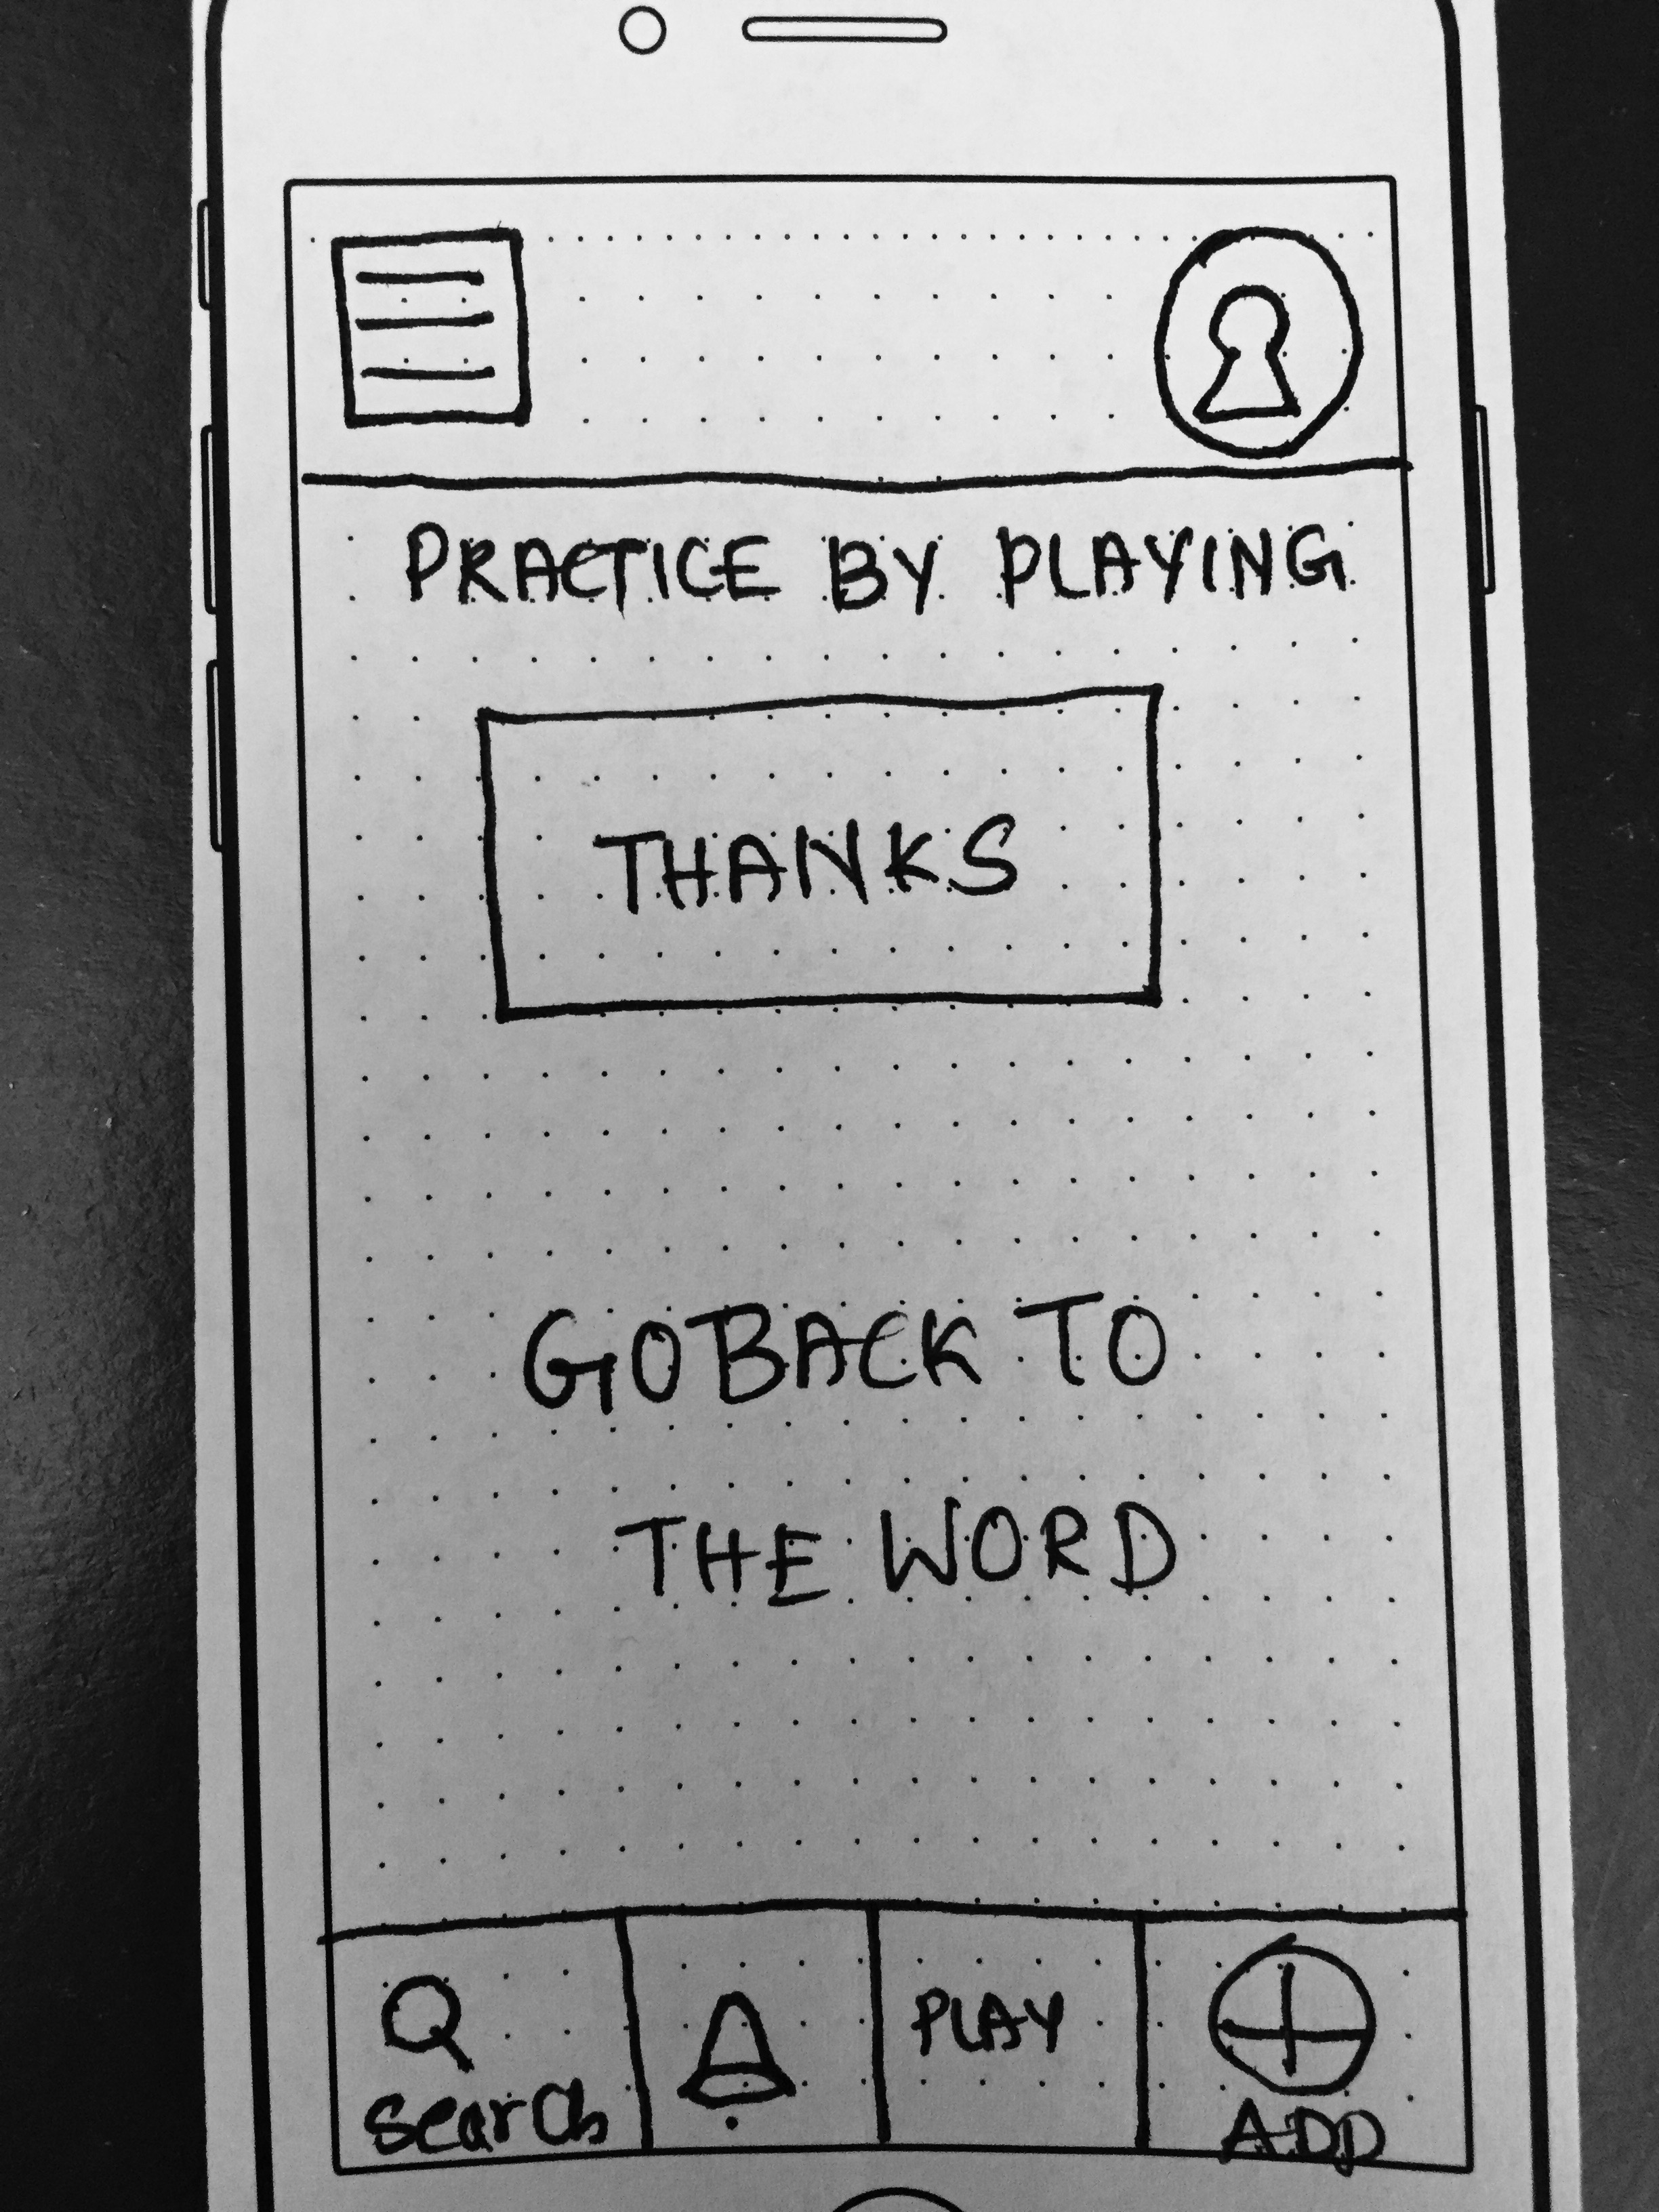 PRACTICE BY PLAYING
THANKS
GO BACK TO
THE WORD
PLAY
search
ADD